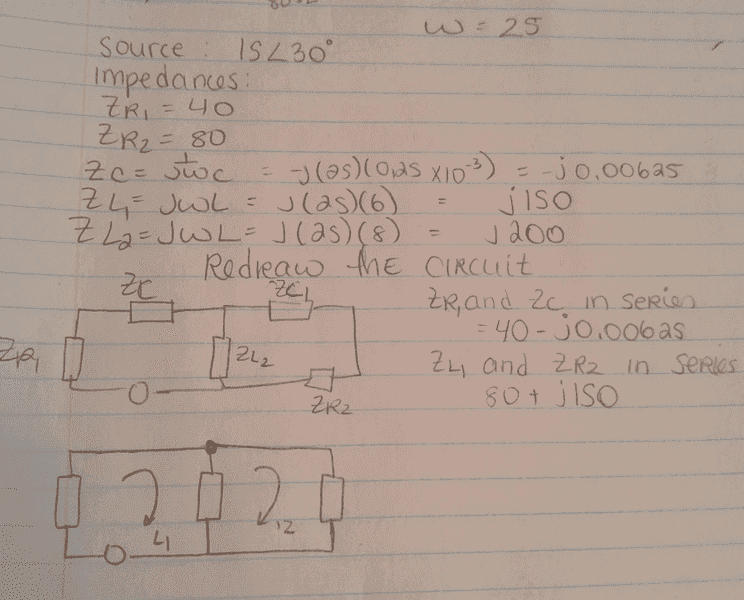 W = 25
Source : 15∠30°
Impedances:
ZR1 = 40
ZR2 = 80
ZC = 1/jwC = -j(25)(0,25 x10⁻³) = -j0,00625
ZL1 = jwL = j(25)(6) = j150
ZL2 = jwL = j(25)(8) = j200
Redraw the CIRCUIT
ZC
ZC1
ZR1
ZL2
ZR2
ZR1 and ZC in series
= 40 - j0,00625
ZL1 and ZR2 in series
80 + j150
L1
i2